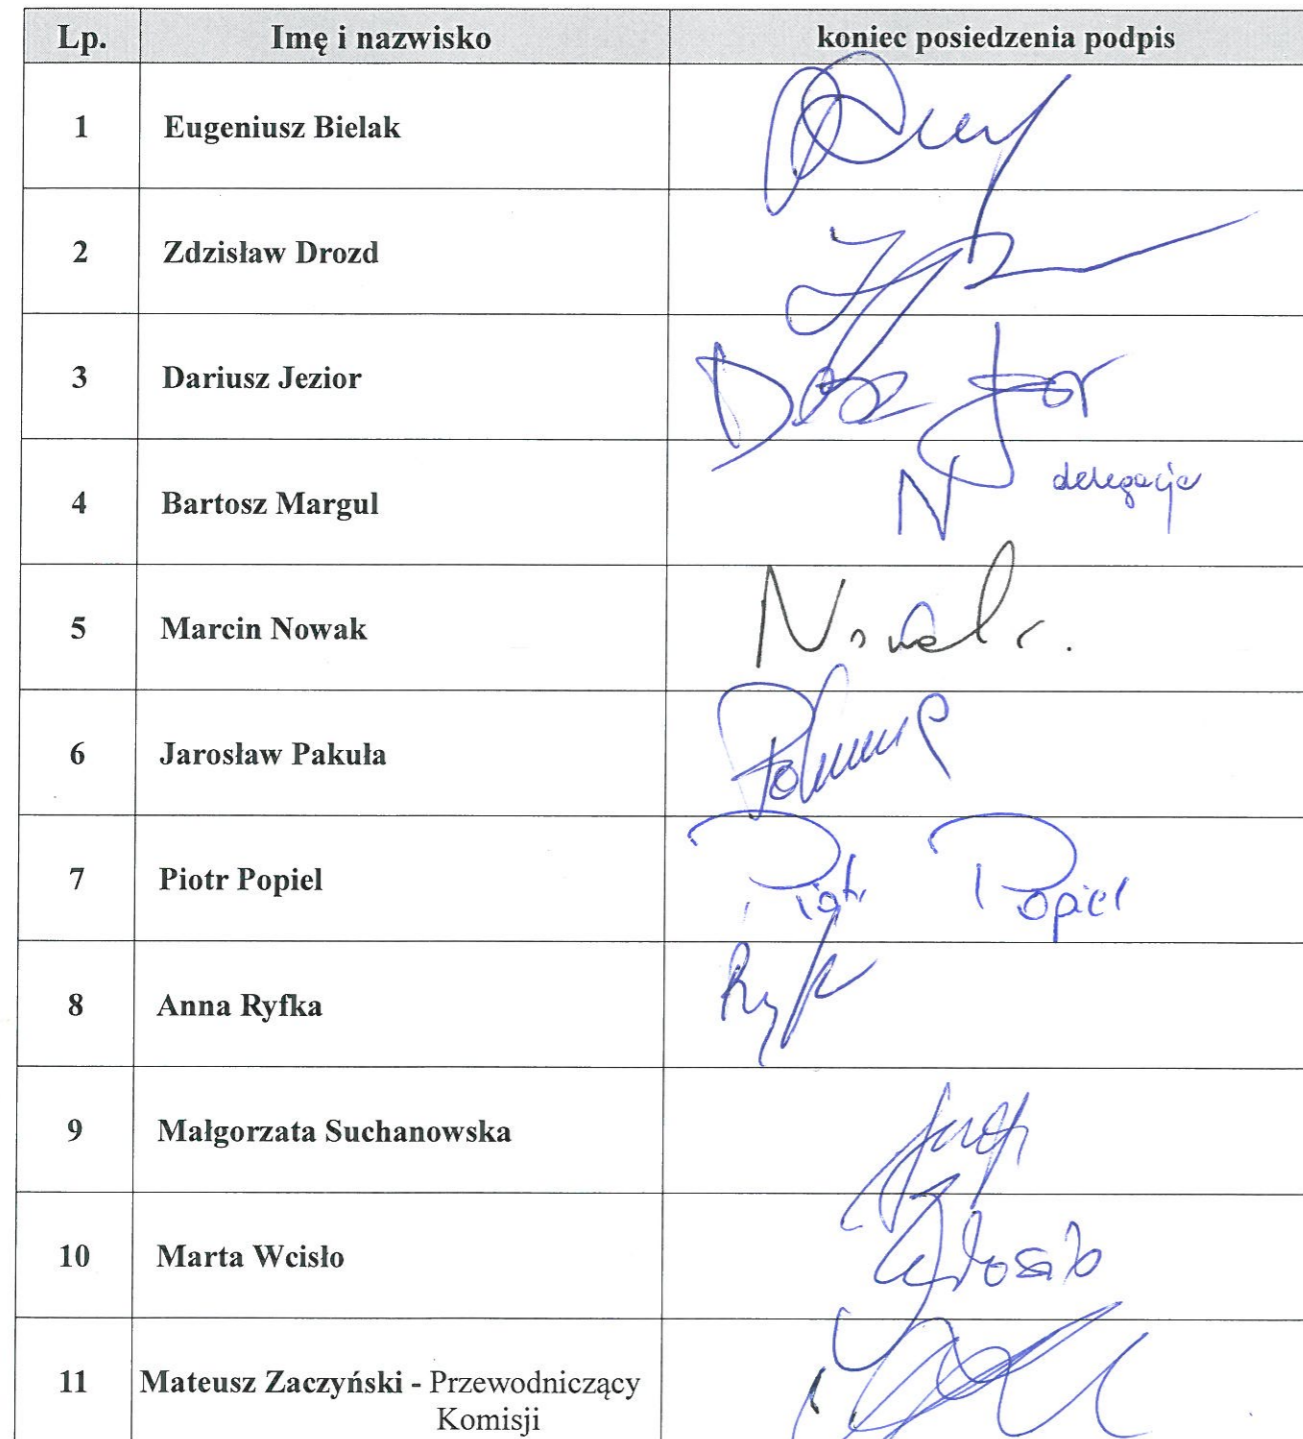 Lp. Imę i nazwisko koniec posiedzenia podpis
1 Eugeniusz Bielak
2 Zdzisław Drozd
3 Dariusz Jezior
4 Bartosz Margul N delegacja
5 Marcin Nowak Nowak.
6 Jarosław Pakuła
7 Piotr Popiel Piotr Popiel
8 Anna Ryfka
9 Małgorzata Suchanowska
10 Marta Wcisło
11 Mateusz Zaczyński - Przewodniczący
Komisji